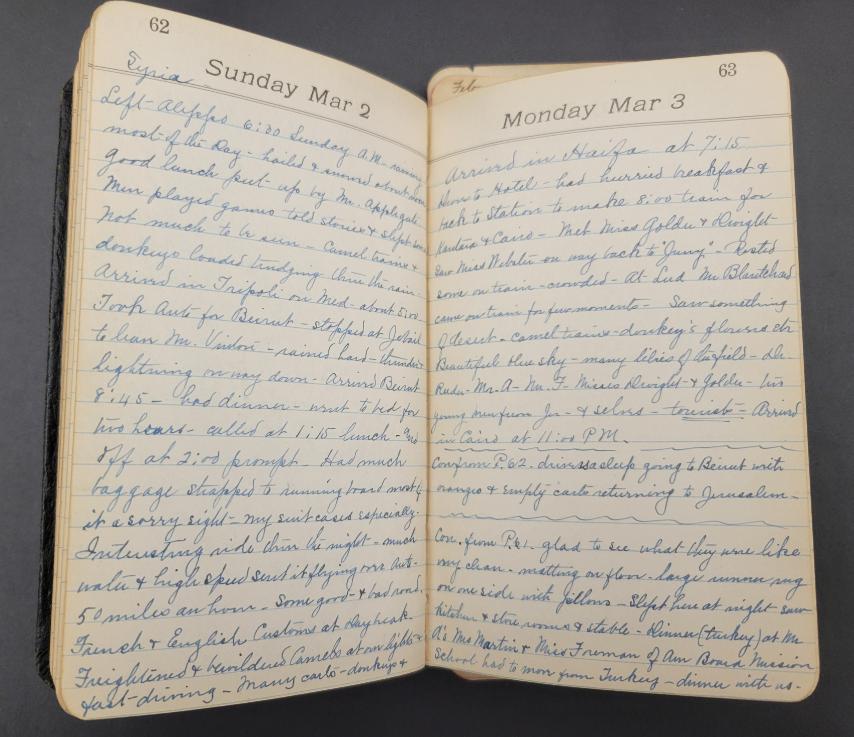 62
Syria
Sunday Mar 2
Left Aleppo 6:30 Sunday A.M. raining
most of the Day - hailed & snowed about noon
Good lunch put up by Mr. Applegate
Men played games told stories & slept some
Not much to be seen - Camel trains &
donkeys loaded trudging thru the rain -
Arrived in Tripoli on Med - about 5:00
Took Auto for Beirut - stopped at Jebail
to leave Mr. - rained hard - thunder
lightning on way down - Arrived Beirut
8:45 - had dinner - went to bed for
two hours - called at 1:15 lunch - and
off at 2:00 prompt - Had much
baggage strapped to running board most of
it a sorry sight - my suit cases especially.
Interesting ride thru the night - much
water & high speed sent it flying over Auto -
50 miles an hour - Some good & bad road,
French & English Customs at Daybreak.
Freightened & bewildered Camels at our lights &
fast driving - Many carts - donkeys &
63
Feb
Monday Mar 3
Arrived in Haifa at 7:15
Down to Hotel - had hurried breakfast &
back to Station to make 8:00 train for
Kantara & Cairo - Met Miss Golder & Dwight
Saw Miss Webster on way back to "Juny" - Rested
some on train - crowded - At Lud Mr Blatchard
came on train for few moments - Saw something
of desert - camel trains - donkey's flowers etc
Beautiful blue sky - many lilies of the field - Dr.
- Mr. A - Mr. F - Misses Dwight & Golder - two
young men from Jr. & selves - tourist - Arrived
in Cairo at 11:00 P.M.
Con from P. 62. drivers asleep going to Beirut with
oranges & empty carts returning to Jerusalem -
Con. from P.61. glad to see what they were like
very clean - matting on floor - large runner rug
on one side with pillows - Slept here at night saw
kitchen & store rooms & stable - Dinner (turkey) at Mr
A's Mrs Martin & Miss Foreman of Am Board Mission
School had to move from Turkey - dinner with us -